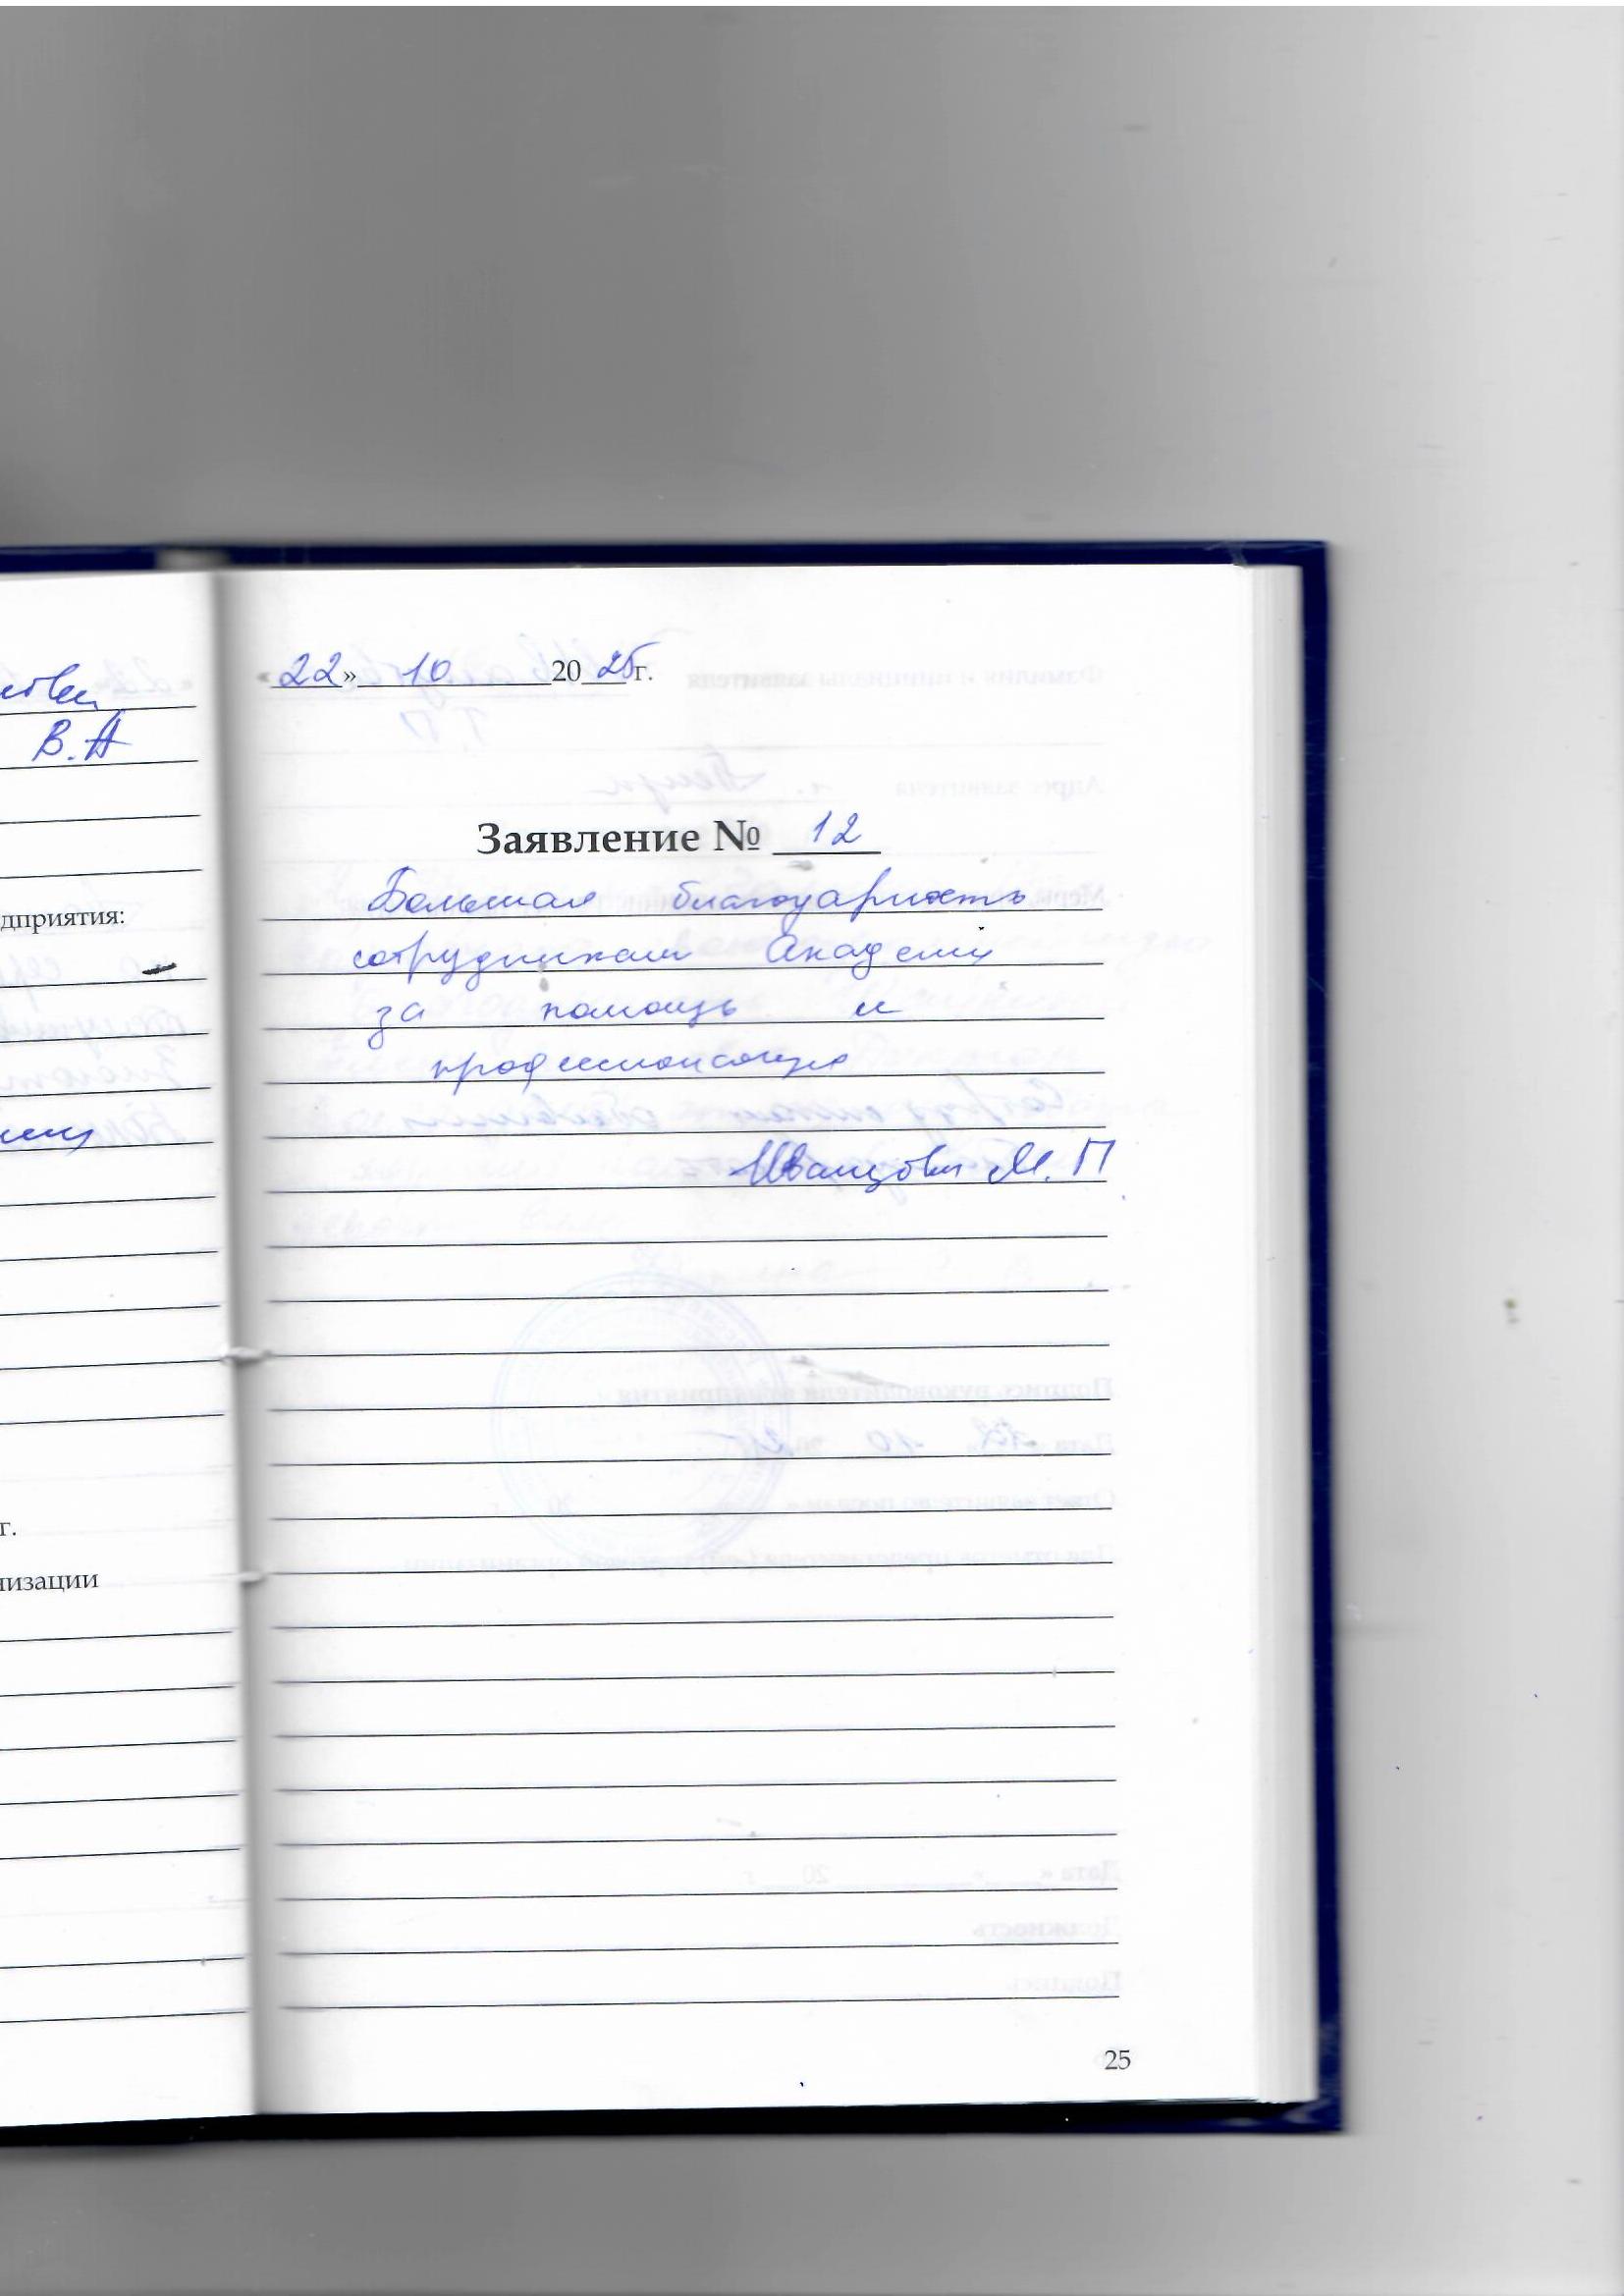 В.А
дприятия:
г.
низации
«22» 10 2025 г.
Заявление № 12
Большая благодарность
сотрудникам Академии
за помощь и
Иванцова М.П
25